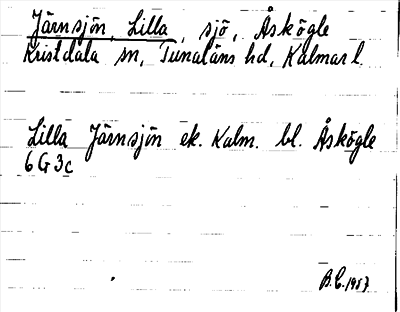 Järnsjön, Lilla, sjö, Åskögle
Kristdala sn, Tunaläns hd, Kalmar l.
Lilla Järnsjön ek. Kalm. bl. Åskögle
6G3c
B.C. 1957